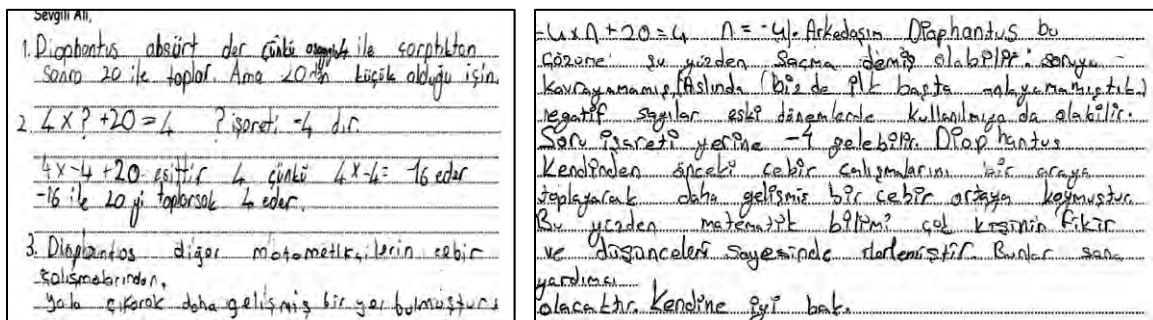 Sevgili Ali,
1. Diophantus absürt der çünkü ile çarptıktan
sonra 20 ile toplar. Ama 20 den küçük olduğu için.
2. 4 x ? + 20 = 4 ? işareti -4 dır.
4 x -4 + 20 eşittir 4 çünkü 4 x -4 = -16 eder
-16 ile 20 yi toplarsak 4 eder.
3. Diophantos diğer matematikçilerin cebir
çalışmalarından,
yola çıkarak daha gelişmiş bir yer bulmuştur.
-4 x n + 20 = 4 n = -4. Arkadaşım Diaphantus bu
çözüme şu yüzden saçma demiş olabilir: soruyu -
kavrayamamış, (Aslında (biz de ilk başta anlayamamıştık.)
negatif sayılar eski dönemlerde kullanılmıyo da olabilir.
Soru işareti yerine -4 gelebilir. Diophantus
Kendinden önceki cebir çalışmalarını bir araya
toplayarak daha gelişmiş bir cebir ortaya koymuştur.
Bu yüzden matematik bilimi çok kişinin fikir
ve düşünceleri sayesinde ilerlemiştir. Bunlar sana
yardımcı
olacaktır. Kendine iyi bak.